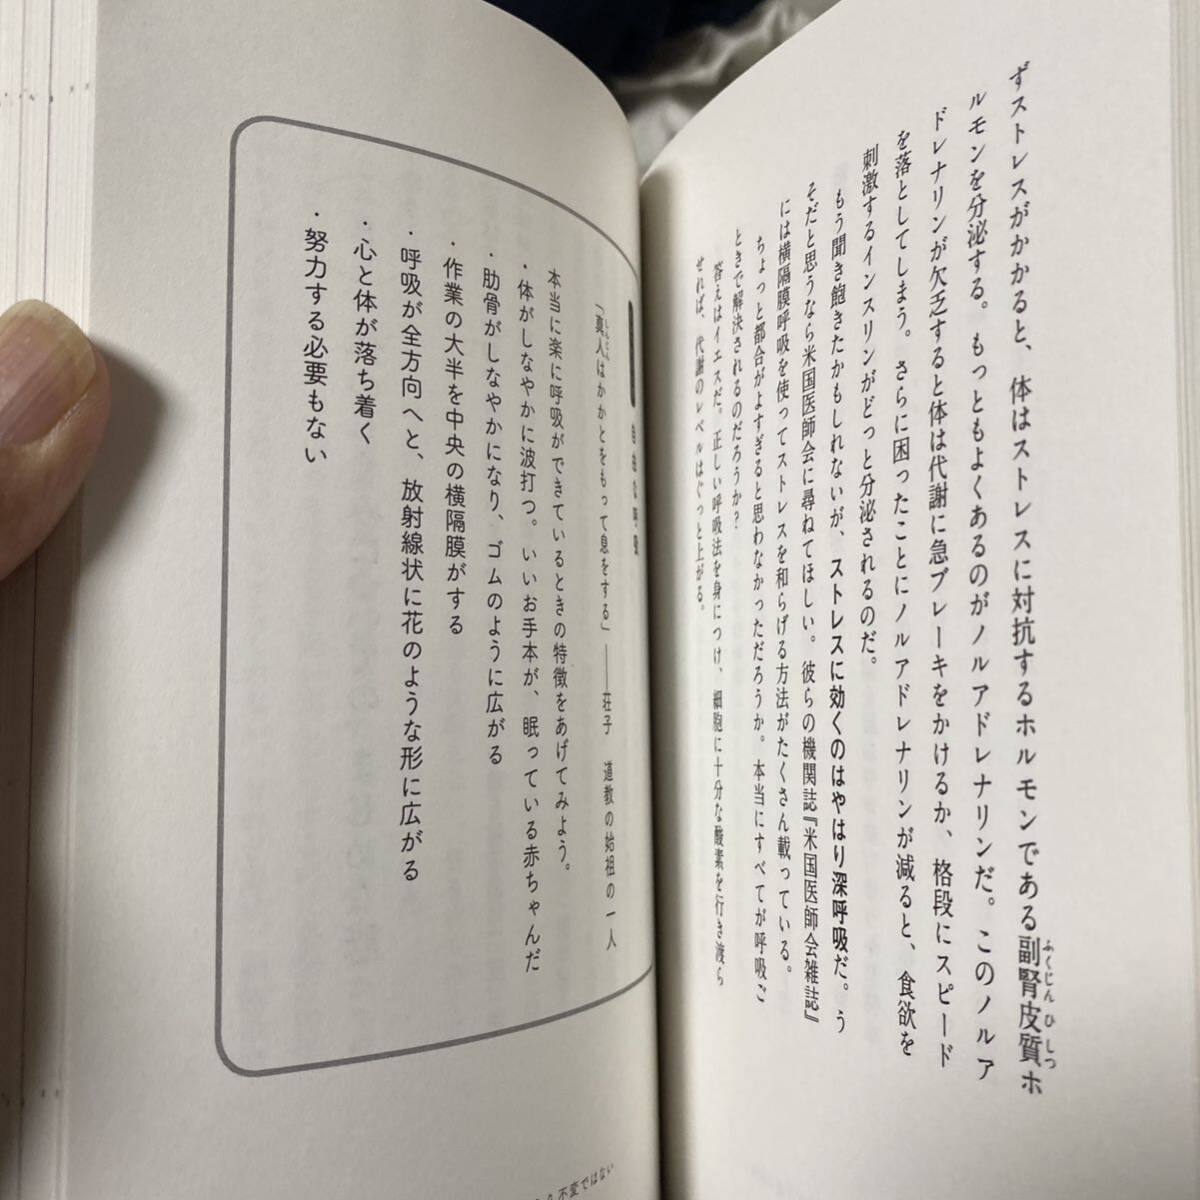 ずストレスがかかると、体はストレスに対抗するホルモンである副腎皮質ホ
ふくじんひしつ
ルモンを分泌する。もっともよくあるのがノルアドレナリンだ。このノルア
ドレナリンが欠乏すると体は代謝に急ブレーキをかけるか、格段にスピード
を落としてしまう。さらに困ったことにノルアドレナリンが減ると、食欲を
刺激するインスリンがどっと分泌されるのだ。
もう聞き飽きたかもしれないが、ストレスに効くのはやはり深呼吸だ。う
そだと思うなら米国医師会に尋ねてほしい。彼らの機関誌『米国医師会雑誌』
には横隔膜呼吸を使ってストレスを和らげる方法がたくさん載っている。
ちょっと都合がよすぎると思わなかっただろうか。本当にすべてが呼吸ご
ときで解決されるのだろうか?
答えはイエスだ。正しい呼吸法を身につけ、細胞に十分な酸素を行き渡ら
せれば、代謝のレベルはぐっと上がる。
自由な呼吸
「真人はかかとをもって息をする」――荘子 道教の始祖の一人
しんじん
本当に楽に呼吸ができているときの特徴をあげてみよう。
・体がしなやかに波打つ。いいお手本が、眠っている赤ちゃんだ
・肋骨がしなやかになり、ゴムのように広がる
・作業の大半を中央の横隔膜がする
・呼吸が全方向へと、放射線状に花のような形に広がる
・心と体が落ち着く
・努力する必要もない
不変ではない